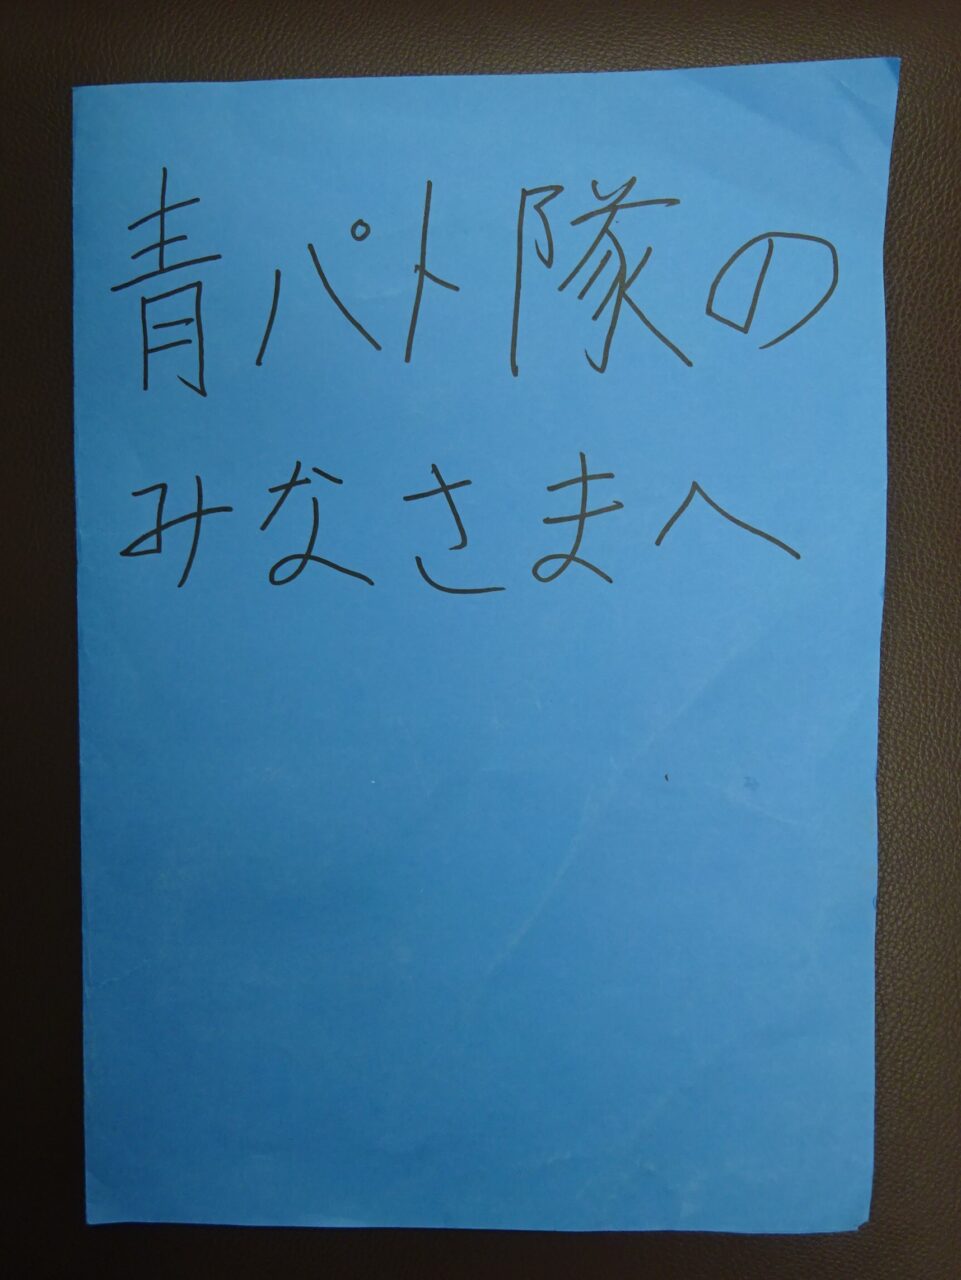 青パト隊の
みなさまへ